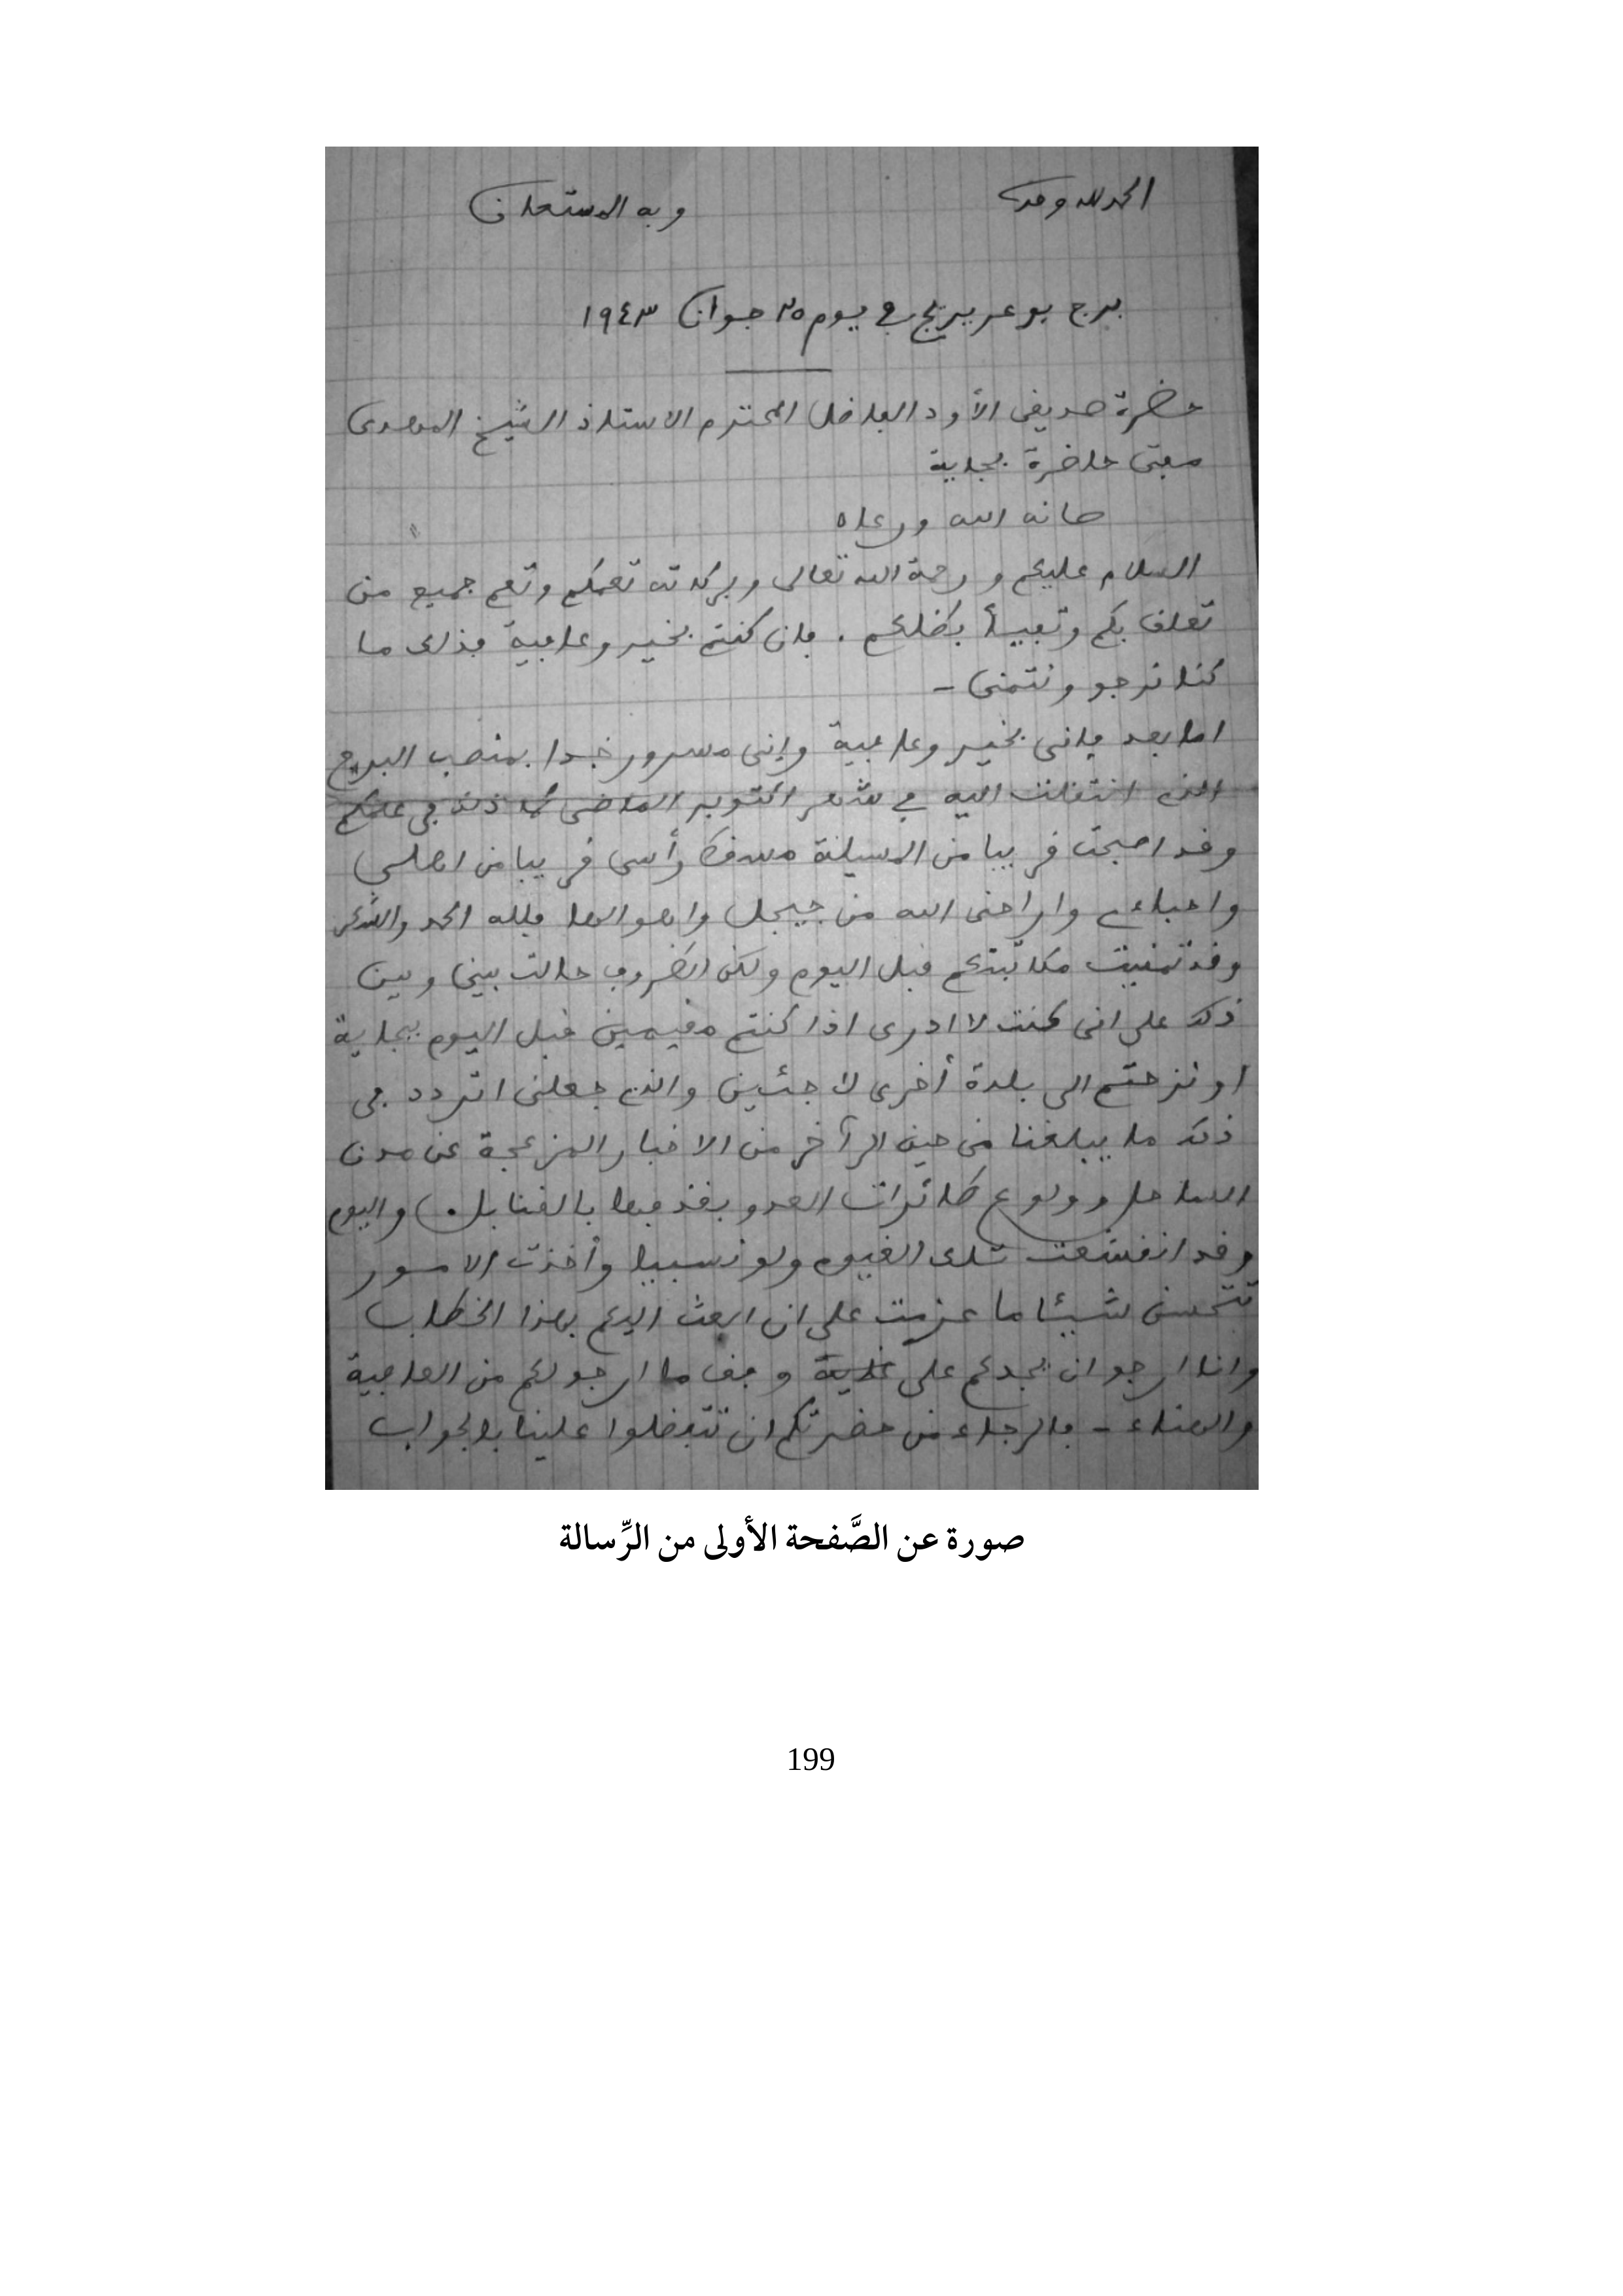 الحمد لله وحده
وبه المستعان
برج بوعريريج في يوم ٢٥ جوان ١٩٤٣
حضرة صديقي الأود الفاضل المحترم الاستاذ الشيخ المهدي
مفتي حاضرة بجاية
صانه الله ورعاه
السلام عليكم ورحمة الله تعالى وبركاته تعمكم وتعم جميع من
تعلق بكم وتفيأ بظلكم . فإن كنتم بخير وعافية فذلك ما
كنا نرجو ونتمنى -
اما بعد فإني بخير وعافية وإني مسرور جدا بمنصب البرج
الذي انتقلت اليه في شهر اكتوبر الماضي كما ذلك في علمكم
وقد اصبحت قريبا من المسيلة مسقط رأسي قريبا من اهلي
واحبائي واراحني الله من جيجل واهوالها فلله الحمد والشكر
وقد تمنيت مكاتبتكم قبل اليوم ولكن الظروف حالت بيني وبين
ذلك على اني كنت لا ادري اذا كنتم مقيمين قبل اليوم ببجاية
او نزحتم الى بلدة أخرى لاجئين والذي جعلني اتردد في
ذلك ما يبلغنا من حين الى آخر من الاخبار المزعجة عن مدن
الساحل وولوع طائرات العدو بقذفها بالقنابل) واليوم
وقد انقشعت تلك الغيوم ولو نسبيا وأخذت الامور
تتحسن شيئا ما عزمت على ان ابعث اليكم بهذا الخطاب
وانا ارجو ان يجدكم على وفق ما ارجو لكم من العافية
والهناء - فالرجاء من حضرتكم ان تتفضلوا علينا بالجواب
صورة عن الصَّفحة الأولى من الرِّسالة
199